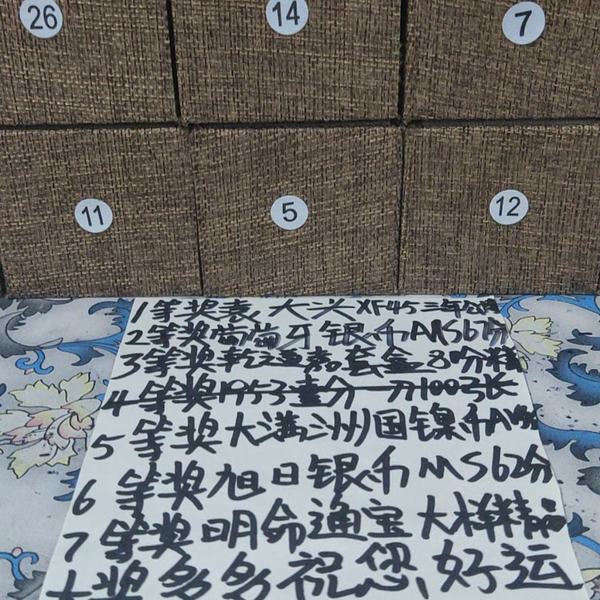 26 14 7
11 5 12
1等奖袁大头XF45三年公博
2等奖葡萄牙银币MS61分
3等奖乾隆嘉套盒80吩精
4等奖1953壹分一刀100张
5等奖大满洲国镍币A
6等奖旭日银币MS62分
7等奖明命通宝大样精品
大奖多多祝您好运